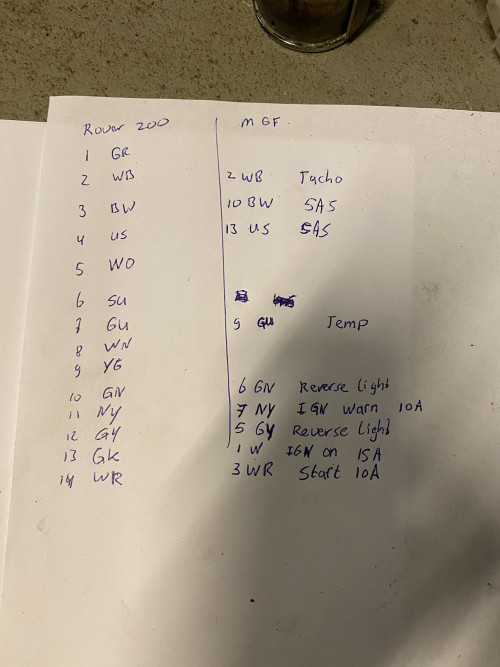 Rover 200 MGF
1 GR
2 WB 2 WB Tacho
3 BW 10 BW SAS
4 US 13 US SAS
5 WO
6 SU
7 GU 9 GU Temp
8 WN
9 YG
10 GN 6 GN Reverse light
11 NY 7 NY IGN warn 10A
12 GY 5 GY Reverse light
13 GK 1 W IGN on 15A
14 WR 3 WR Start 10A